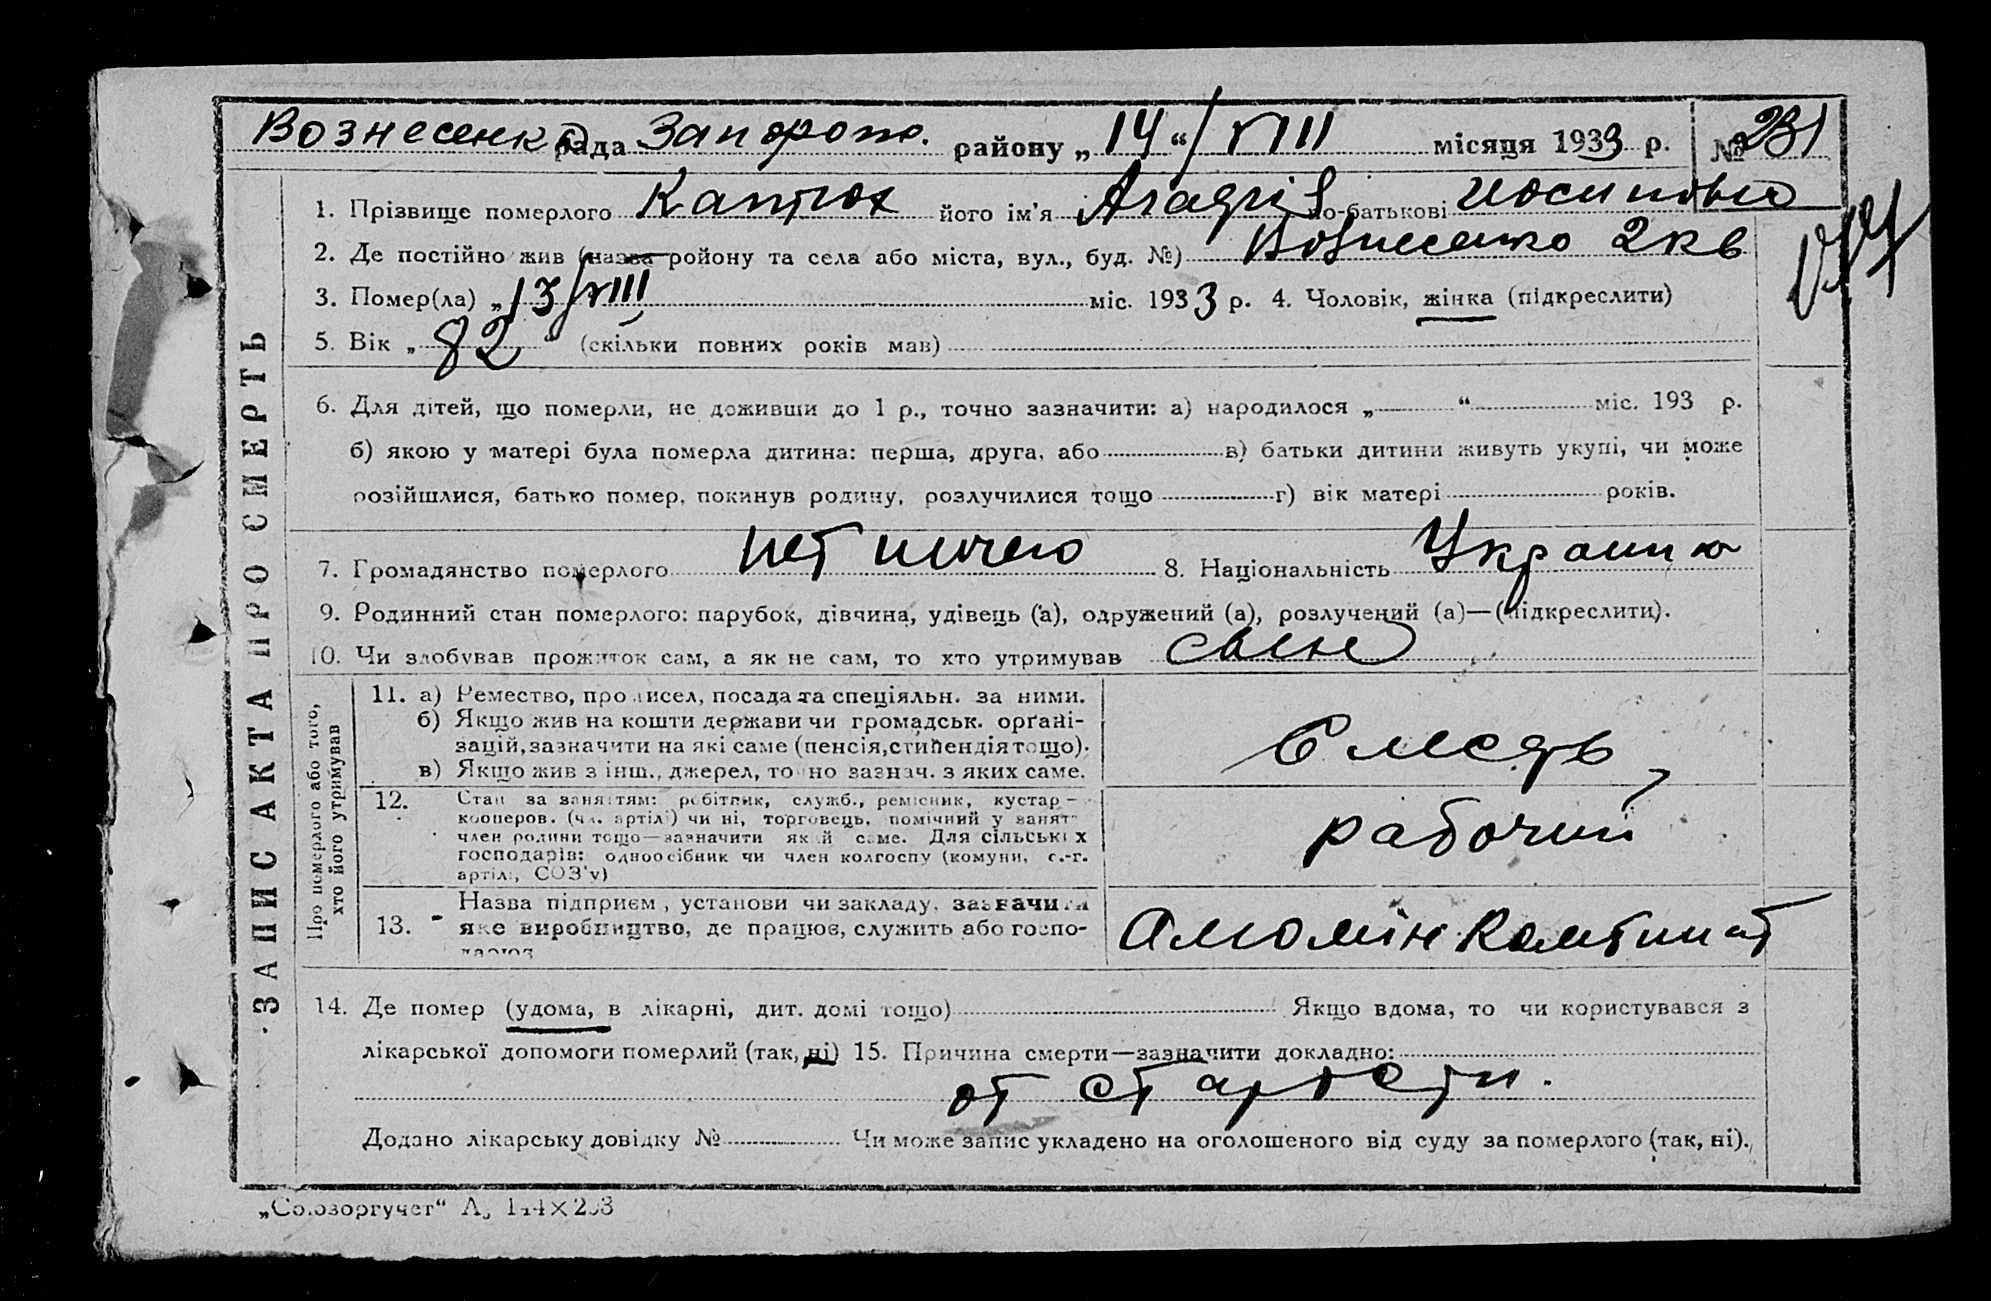 Вознесенк рада Запорож. району „ 14 “ / VIII місяця 1933 р. № 231
1. Прізвище померлого Каптюх його ім'я по-батькові
2. Де постійно жив (назва ройону та села або міста, вул., буд. №) Вознесенко 2 кв
3. Помер(ла) „ 13/VIII міс. 1933 р. 4. Чоловік, жінка (підкреслити)
5. Вік „ 82 “ (скільки повних років мав)
6. Для дітей, що померли, не доживши до 1 р., точно зазначити: а) народилося „ “ міс. 193 р.
б) якою у матері була померла дитина: перша, друга, або в) батьки дитини живуть укупі, чи може
розійшлися, батько помер, покинув родину, розлучилися тощо г) вік матері років.
7. Громадянство померлого нет ничего 8. Національність Украин
9. Родинний стан померлого: парубок, дівчина, удівець (а), одружений (а), розлучений (а)—(підкреслити).
10. Чи здобував прожиток сам, а як не сам, то хто утримував сын
ЗАПИС АКТА ПРО СМЕРТЬ
Про померлого або того,
хто його утримував
11. а) Ремество, промисел, посада та спеціяльн. за ними.
б) Якщо жив на кошти держави чи громадськ. орґані-
зацій, зазначити на які саме (пенсія, стипендія тощо).
в) Якщо жив з інш., джерел, точно зазнач. з яких саме.
Слесарь,
12. Стан за заняттям: робітник, служб., ремісник, кустар –
кооперов. (чл. артілі) чи ні, торговець, помічний у занят-
член родини тощо—зазначити який саме. Для сільських
господарів: одноосібник чи член колгоспу (комуни, с.-г.
артілі, СОЗ'у)
рабочий
13. Назва підприєм , установи чи закладу, зазначити
яке виробництво, де працює, служить або госпо-
дарює
Алюмін Комбинат
14. Де помер (удома, в лікарні, дит. домі тощо) Якщо вдома, то чи користувався з
лікарської допомоги померлий (так, ні) 15. Причина смерти—зазначити докладно:
от старости.
Додано лікарську довідку № Чи може запис укладено на оголошеного від суду за померлого (так, ні).
„Союзоргучет“